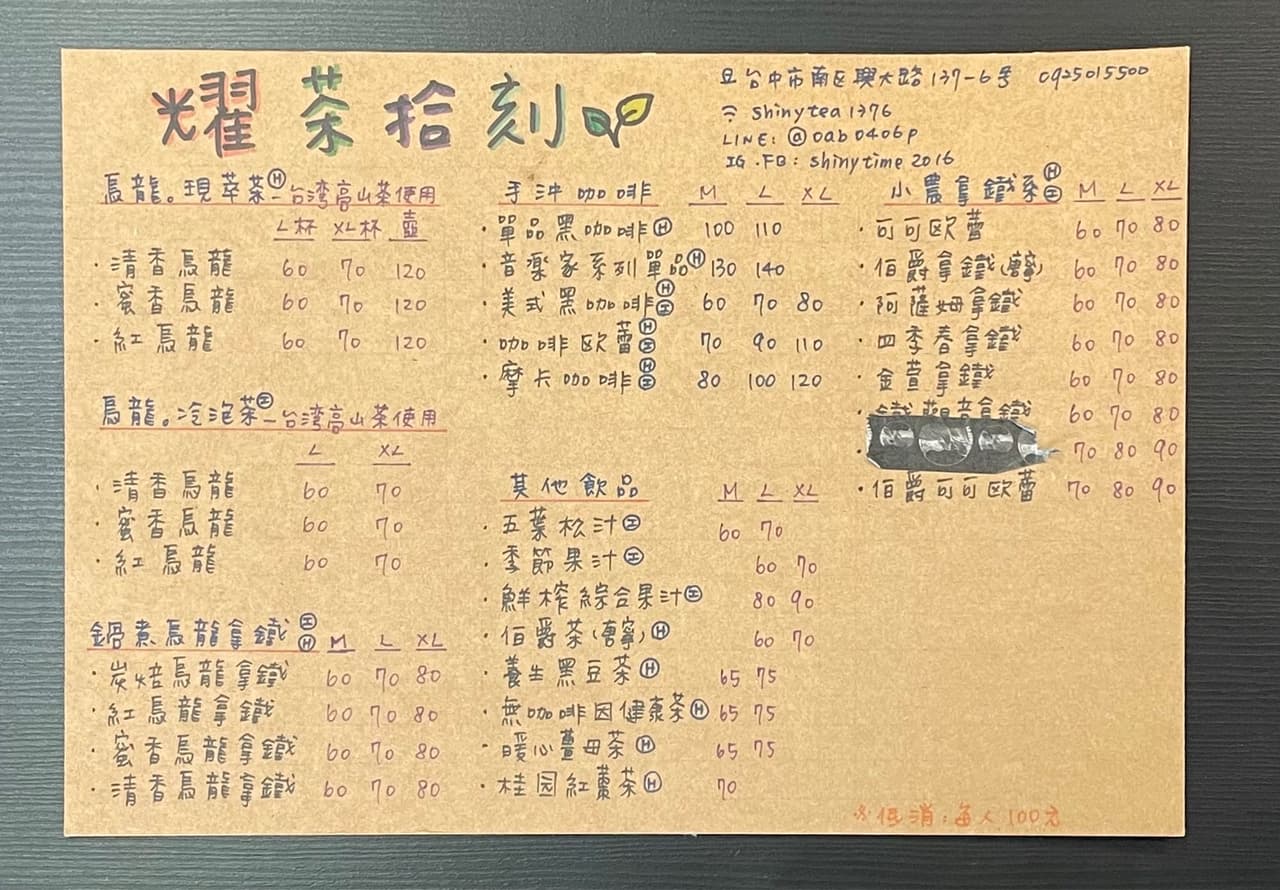 耀茶拾刻
台中市南區興大路137-6号 0925015500
shinytea1376
LINE: @oab0406p
IG.FB: shinytime2016
烏龍。現萃茶Ⓗ-台湾高山茶使用
L杯 XL杯 壺
·清香烏龍 60 70 120
·蜜香烏龍 60 70 120
·紅烏龍 60 70 120
烏龍。冷泡茶Ⓘ-台湾高山茶使用
L XL
·清香烏龍 60 70
·蜜香烏龍 60 70
·紅烏龍 60 70
鍋煮烏龍拿鐵ⒾⒽ M L XL
·炭焙烏龍拿鐵 60 70 80
·紅烏龍拿鐵 60 70 80
·蜜香烏龍拿鐵 60 70 80
·清香烏龍拿鐵 60 70 80
手沖咖啡 M L XL
·單品黑咖啡Ⓗ 100 110
·音楽家系列單品Ⓗ 130 140
·美式黑咖啡ⒽⒾ 60 70 80
·咖啡欧蕾ⒽⒾ 70 90 110
·摩卡咖啡ⒽⒾ 80 100 120
其他飲品 M L XL
·五葉松汁Ⓘ 60 70
·季節果汁Ⓘ 60 70
·鮮榨綜合果汁Ⓘ 80 90
·伯爵茶(唐寧)Ⓗ 60 70
·養生黑豆茶Ⓗ 65 75
·無咖啡因健康茶Ⓗ 65 75
·暖心薑母茶Ⓗ 65 75
·桂园紅棗茶Ⓗ 70
小農拿鐵系ⒽⒾ M L XL
·可可欧蕾 60 70 80
·伯爵拿鐵(唐寧) 60 70 80
·阿薩姆拿鐵 60 70 80
·四季春拿鐵 60 70 80
·金萱拿鐵 60 70 80
·鐵觀音拿鐵 60 70 80
70 80 90
·伯爵可可欧蕾 70 80 90
※低消:每人100元